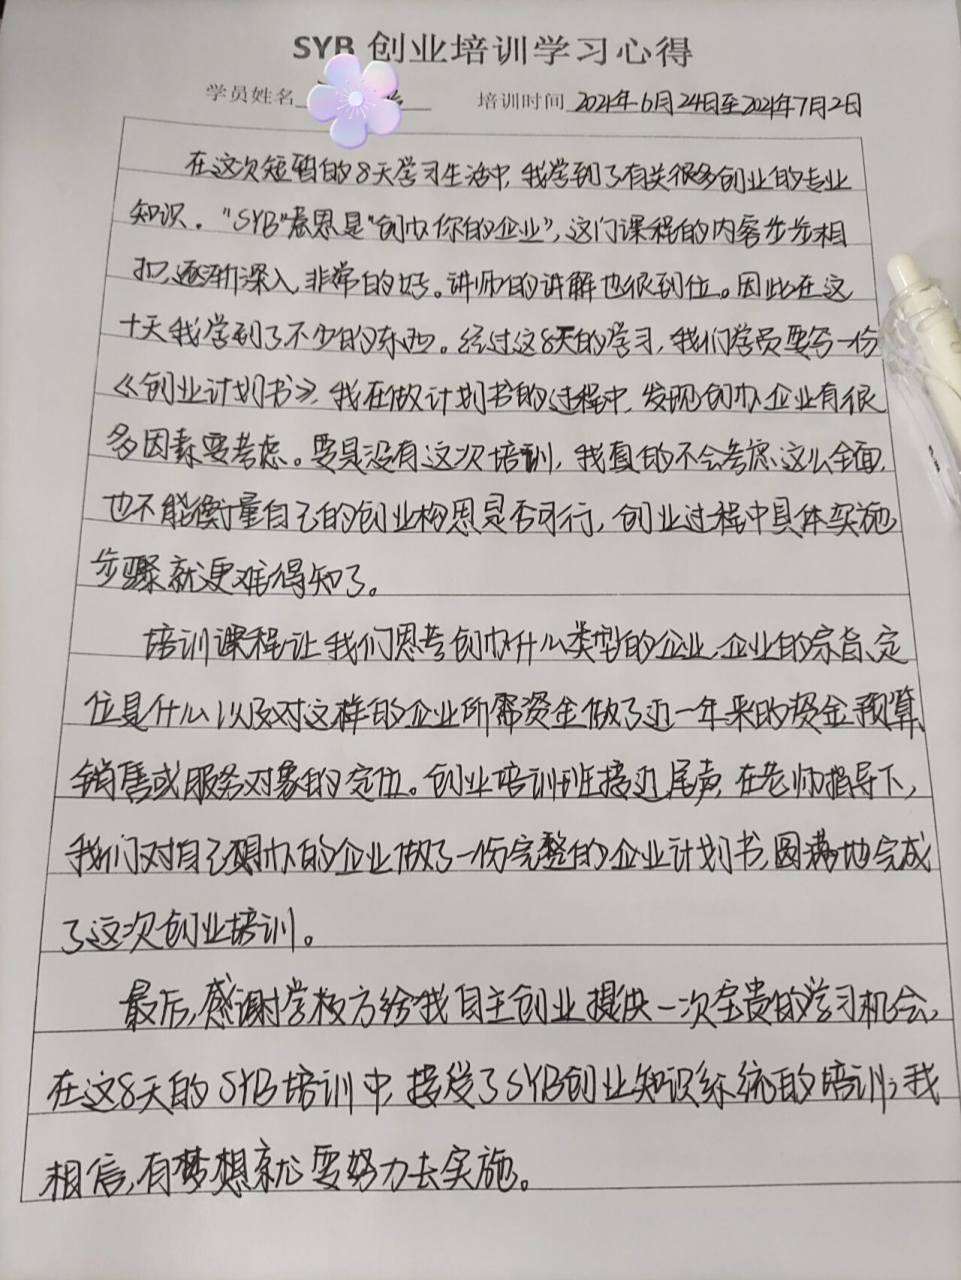 SYB 创业培训学习心得
学员姓名 培训时间 2021年6月24日至2021年7月2日
在这次短暂的8天学习生活中,我学到了有关很多创业的专业
知识。"SYB"意思是"创办你的企业",这门课程的内容步步相
扣,逐渐深入,非常的好。讲师的讲解也很到位。因此在这
十天我学到了不少的东西。经过这8天的学习,我们学员要写一份
《创业计划书》,我在做计划书的过程中,发现创办企业有很
多因素要考虑。要是没有这次培训,我真的不会考虑这么全面,
也不能衡量自己的创业构思是否可行,创业过程中具体实施
步骤就更难得知了。
培训课程让我们思考创办什么类型的企业、企业的宗旨、定
位是什么以及对这样的企业所需资金做了近一年来的资金预算,
销售或服务对象的定位。创业培训班接近尾声,在老师指导下,
我们对自己想办的企业做了一份完整的企业计划书,圆满地完成
了这次创业培训。
最后,感谢学校方给我自主创业提供一次宝贵的学习机会,
在这8天的SYB培训中,接受了SYB创业知识系统的培训;我
相信,有梦想就要努力去实施。